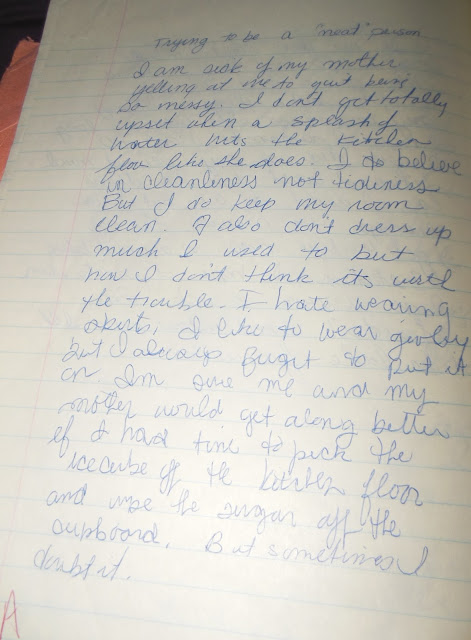 Trying to be a "neat" person
I am sick of my mother
yelling at me to quit being
so messy. I don't get totally
upset when a splash of
water hits the kitchen
floor like she does. I do believe
in cleanliness not tidiness
But I do keep my room
clean. I also don't dress up
much I used to but
now I don't think its worth
the trouble. I hate wearing
skirts, I like to wear jewelry
but I always forget to put it
on. Im sure me and my
mother would get along better
if I had time to pick the
icecube off the kitchen floor
and wipe the sugar off the
cupboard. But sometimes I
doubt it.
A